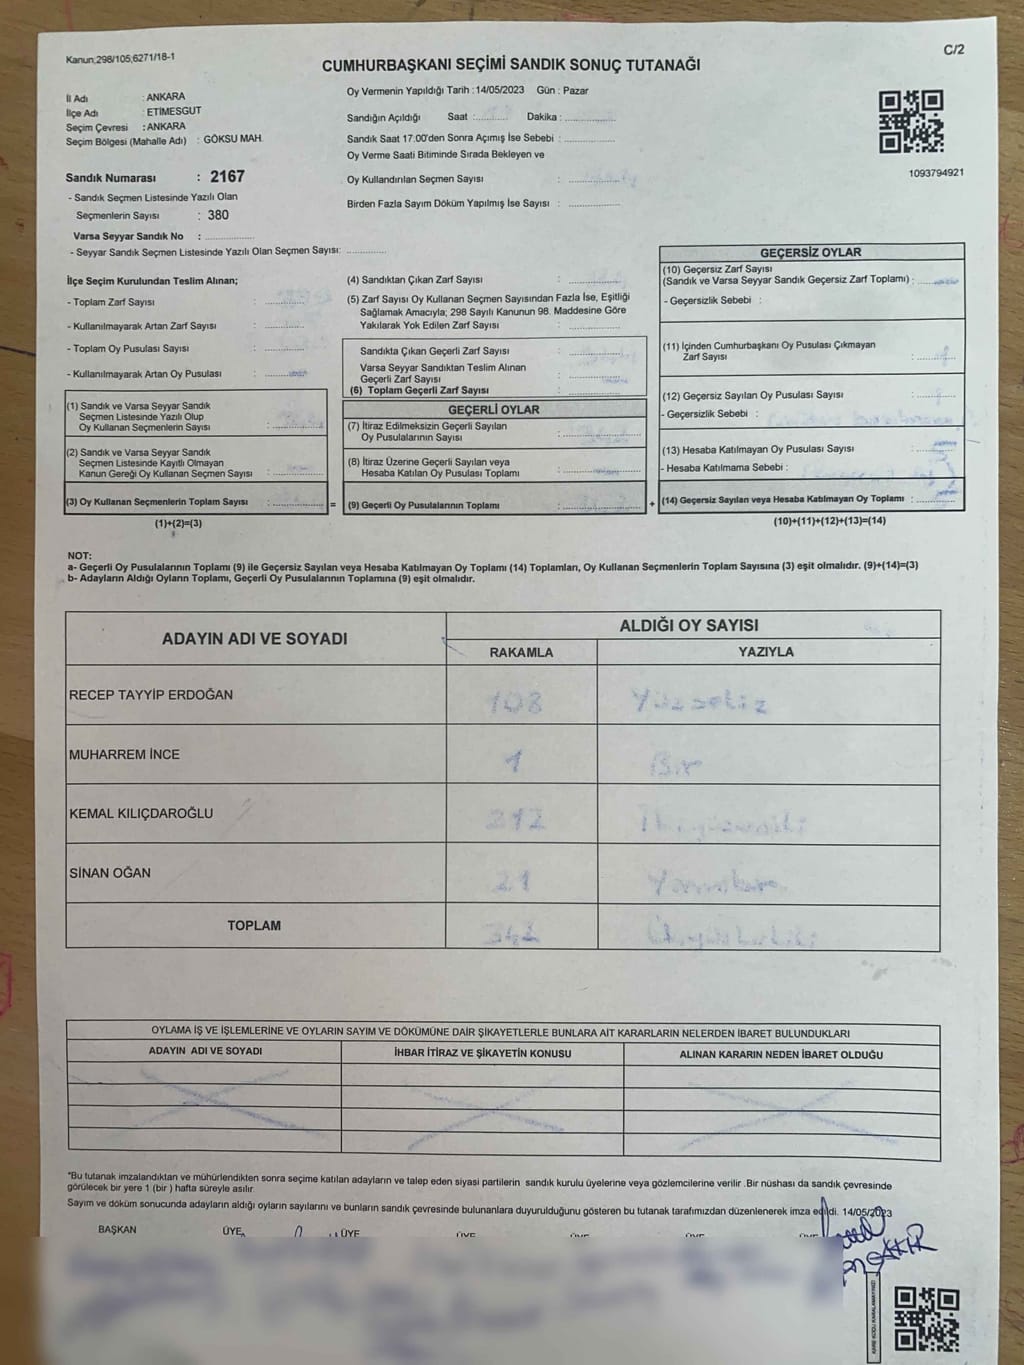 Kanun;298/105;6271/18-1
C/2
CUMHURBAŞKANI SEÇİMİ SANDIK SONUÇ TUTANAĞI
İl Adı : ANKARA
İlçe Adı : ETİMESGUT
Seçim Çevresi : ANKARA
Seçim Bölgesi (Mahalle Adı) : GÖKSU MAH.
Sandık Numarası : 2167
- Sandık Seçmen Listesinde Yazılı Olan
Seçmenlerin Sayısı : 380
Varsa Seyyar Sandık No : ..............
- Seyyar Sandık Seçmen Listesinde Yazılı Olan Seçmen Sayısı: ............
Oy Vermenin Yapıldığı Tarih : 14/05/2023 Gün : Pazar
Sandığın Açıldığı Saat :.......... Dakika : ..............
Sandık Saat 17:00'den Sonra Açımış İse Sebebi : ..............
Oy Verme Saati Bitiminde Sırada Bekleyen ve
Oy Kullandırılan Seçmen Sayısı : ..............
Birden Fazla Sayım Döküm Yapılmış İse Sayısı : ..............
1093794921
İlçe Seçim Kurulundan Teslim Alınan;
- Toplam Zarf Sayısı : ............
- Kullanılmayarak Artan Zarf Sayısı : ............
- Toplam Oy Pusulası Sayısı : ............
- Kullanılmayarak Artan Oy Pusulası : ............
(1) Sandık ve Varsa Seyyar Sandık
Seçmen Listesinde Yazılı Olup
Oy Kullanan Seçmenlerin Sayısı : ..............
(2) Sandık ve Varsa Seyyar Sandık
Seçmen Listesinde Kayıtlı Olmayan
Kanun Gereği Oy Kullanan Seçmen Sayısı : ..............
(3) Oy Kullanan Seçmenlerin Toplam Sayısı : .............. =
(1)+(2)=(3)
(4) Sandıktan Çıkan Zarf Sayısı : ..............
(5) Zarf Sayısı Oy Kullanan Seçmen Sayısından Fazla İse, Eşitliği
Sağlamak Amacıyla; 298 Sayılı Kanunun 98. Maddesine Göre
Yakılarak Yok Edilen Zarf Sayısı : ..............
Sandıkta Çıkan Geçerli Zarf Sayısı : ..............
Varsa Seyyar Sandıktan Teslim Alınan
Geçerli Zarf Sayısı : ..............
(6) Toplam Geçerli Zarf Sayısı : ..............
GEÇERLİ OYLAR
(7) İtiraz Edilmeksizin Geçerli Sayılan
Oy Pusulalarının Sayısı : ..............
(8) İtiraz Üzerine Geçerli Sayılan veya
Hesaba Katılan Oy Pusulası Toplamı : ..............
(9) Geçerli Oy Pusulalarının Toplamı : .............. +
GEÇERSİZ OYLAR
(10) Geçersiz Zarf Sayısı
(Sandık ve Varsa Seyyar Sandık Geçersiz Zarf Toplamı) : ..........
- Geçersizlik Sebebi :
(11) İçinden Cumhurbaşkanı Oy Pusulası Çıkmayan
Zarf Sayısı : ..........
(12) Geçersiz Sayılan Oy Pusulası Sayısı : ..........
- Geçersizlik Sebebi :
(13) Hesaba Katılmayan Oy Pusulası Sayısı : ..........
- Hesaba Katılmama Sebebi :
(14) Geçersiz Sayılan veya Hesaba Katılmayan Oy Toplamı : ..........
(10)+(11)+(12)+(13)=(14)
NOT:
a- Geçerli Oy Pusulalarının Toplamı (9) ile Geçersiz Sayılan veya Hesaba Katılmayan Oy Toplamı (14) Toplamları, Oy Kullanan Seçmenlerin Toplam Sayısına (3) eşit olmalıdır. (9)+(14)=(3)
b- Adayların Aldığı Oyların Toplamı, Geçerli Oy Pusulalarının Toplamına (9) eşit olmalıdır.
ADAYIN ADI VE SOYADI
ALDIĞI OY SAYISI
RAKAMLA YAZIYLA
RECEP TAYYİP ERDOĞAN 108 Yüzsekiz
MUHARREM İNCE 1 Bir
KEMAL KILIÇDAROĞLU 212 İkiyüzoniki
SİNAN OĞAN 21 Yirmibir
TOPLAM 342
OYLAMA İŞ VE İŞLEMLERİNE VE OYLARIN SAYIM VE DÖKÜMÜNE DAİR ŞİKAYETLERLE BUNLARA AİT KARARLARIN NELERDEN İBARET BULUNDUKLARI
ADAYIN ADI VE SOYADI İHBAR İTİRAZ VE ŞİKAYETİN KONUSU ALINAN KARARIN NEDEN İBARET OLDUĞU
*Bu tutanak imzalandıktan ve mühürlendikten sonra seçime katılan adayların ve talep eden siyasi partilerin sandık kurulu üyelerine veya gözlemcilerine verilir .Bir nüshası da sandık çevresinde
görülecek bir yere 1 (bir ) hafta süreyle asılır.
Sayım ve döküm sonucunda adayların aldığı oyların sayılarını ve bunların sandık çevresinde bulunanlara duyurulduğunu gösteren bu tutanak tarafımızdan düzenlenerek imza edildi. 14/05/2023
BAŞKAN ÜYE ÜYE ÜYE ÜYE ÜYE
KARE KODU KARALAMAYINIZ!